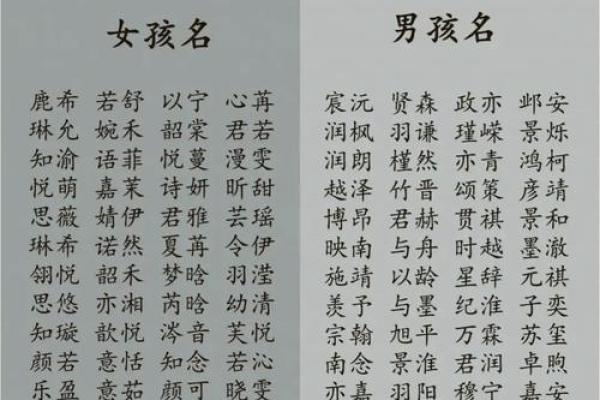 女孩名
鹿希 若舒 以宁 心苒
琳允 婉禾 韶棠 君若
知渝 语菲 悦蔓 漫雯
悦萌 嘉茉 诗妍 昕甜
思薇 婧伊 君雅 芸瑶
琳希 诺然 夏苒 令伊
翎悦 韶禾 梦晗 羽滢
思悠 亦湘 芮晗 幼清
知璇 歆悦 涔音 芙悦
颜若 意恬 知念 若沁
乐盈 意茹 颜可 晓雯
男孩名
宸沅 贤森 政亦 邺安
润枫 羽谦 瑾嵘 景烁
润朗 槿然 亦青 鸿柯
越泽 竹晋 颂策 彦靖
博昂 君赫 贯祺 景和
映南 与舟 时越 墨澈
施靖 以龄 星辞 元祺
羡予 与墨 纪淮 子奕
宗翰 旭平 万霖 苏玺
南念 景淮 君润 卓煦
亦嘉 羽阳 穆宁 嘉安